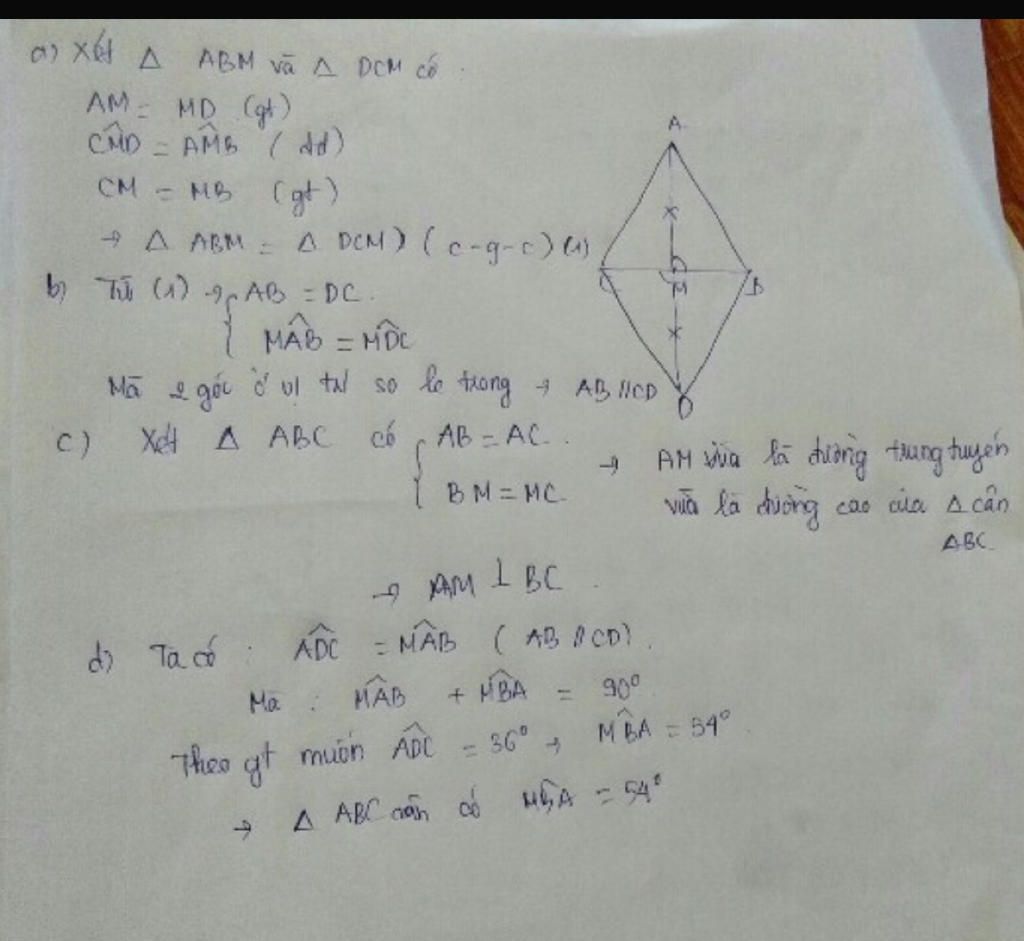 a) Xét △ ABM và △ DCM có :
AM = MD (gt)
CM̂D = AM̂B ( dd)
CM = MB (gt)
→ △ ABM = △ DCM) ( c-g-c) (1)
b) Từ (1) → { AB = DC.
MÂB = MD̂C
Mà 2 góc ở vị trí so le trong → AB // CD
c) Xét △ ABC có { AB = AC .
BM = MC.
→ AM vừa là đường trung tuyến
vừa là đường cao của △ cân
△BC
→ AM ⊥ BC .
d) Ta có : AD̂C = MÂB ( AB // CD) .
Mà : MÂB + MB̂A = 90°
Theo gt muốn AD̂C = 36° → MB̂A = 54° .
→ △ ABC cần có MB̂A = 54°
A
C
M
B
D